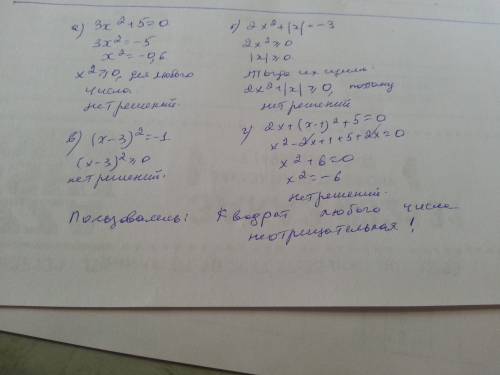 а) 3x²+5=0
3x²=-5
x²=-0,6
x²≥0, для любого
числа
нет решений.
2x²+|x|=-3
2x²≥0
|x|≥0.
Тогда их сумма
2x²+|x|≥0, потому
нет решений
в) (x-3)²=-1
(x-3)²≥0
нет решений.
г) 2x+(x-1)²+5=0
x²-2x+1+5+2x=0
x²+6=0
x²=-6
нет решений.
Квадрат любого числа
неотрицательная!